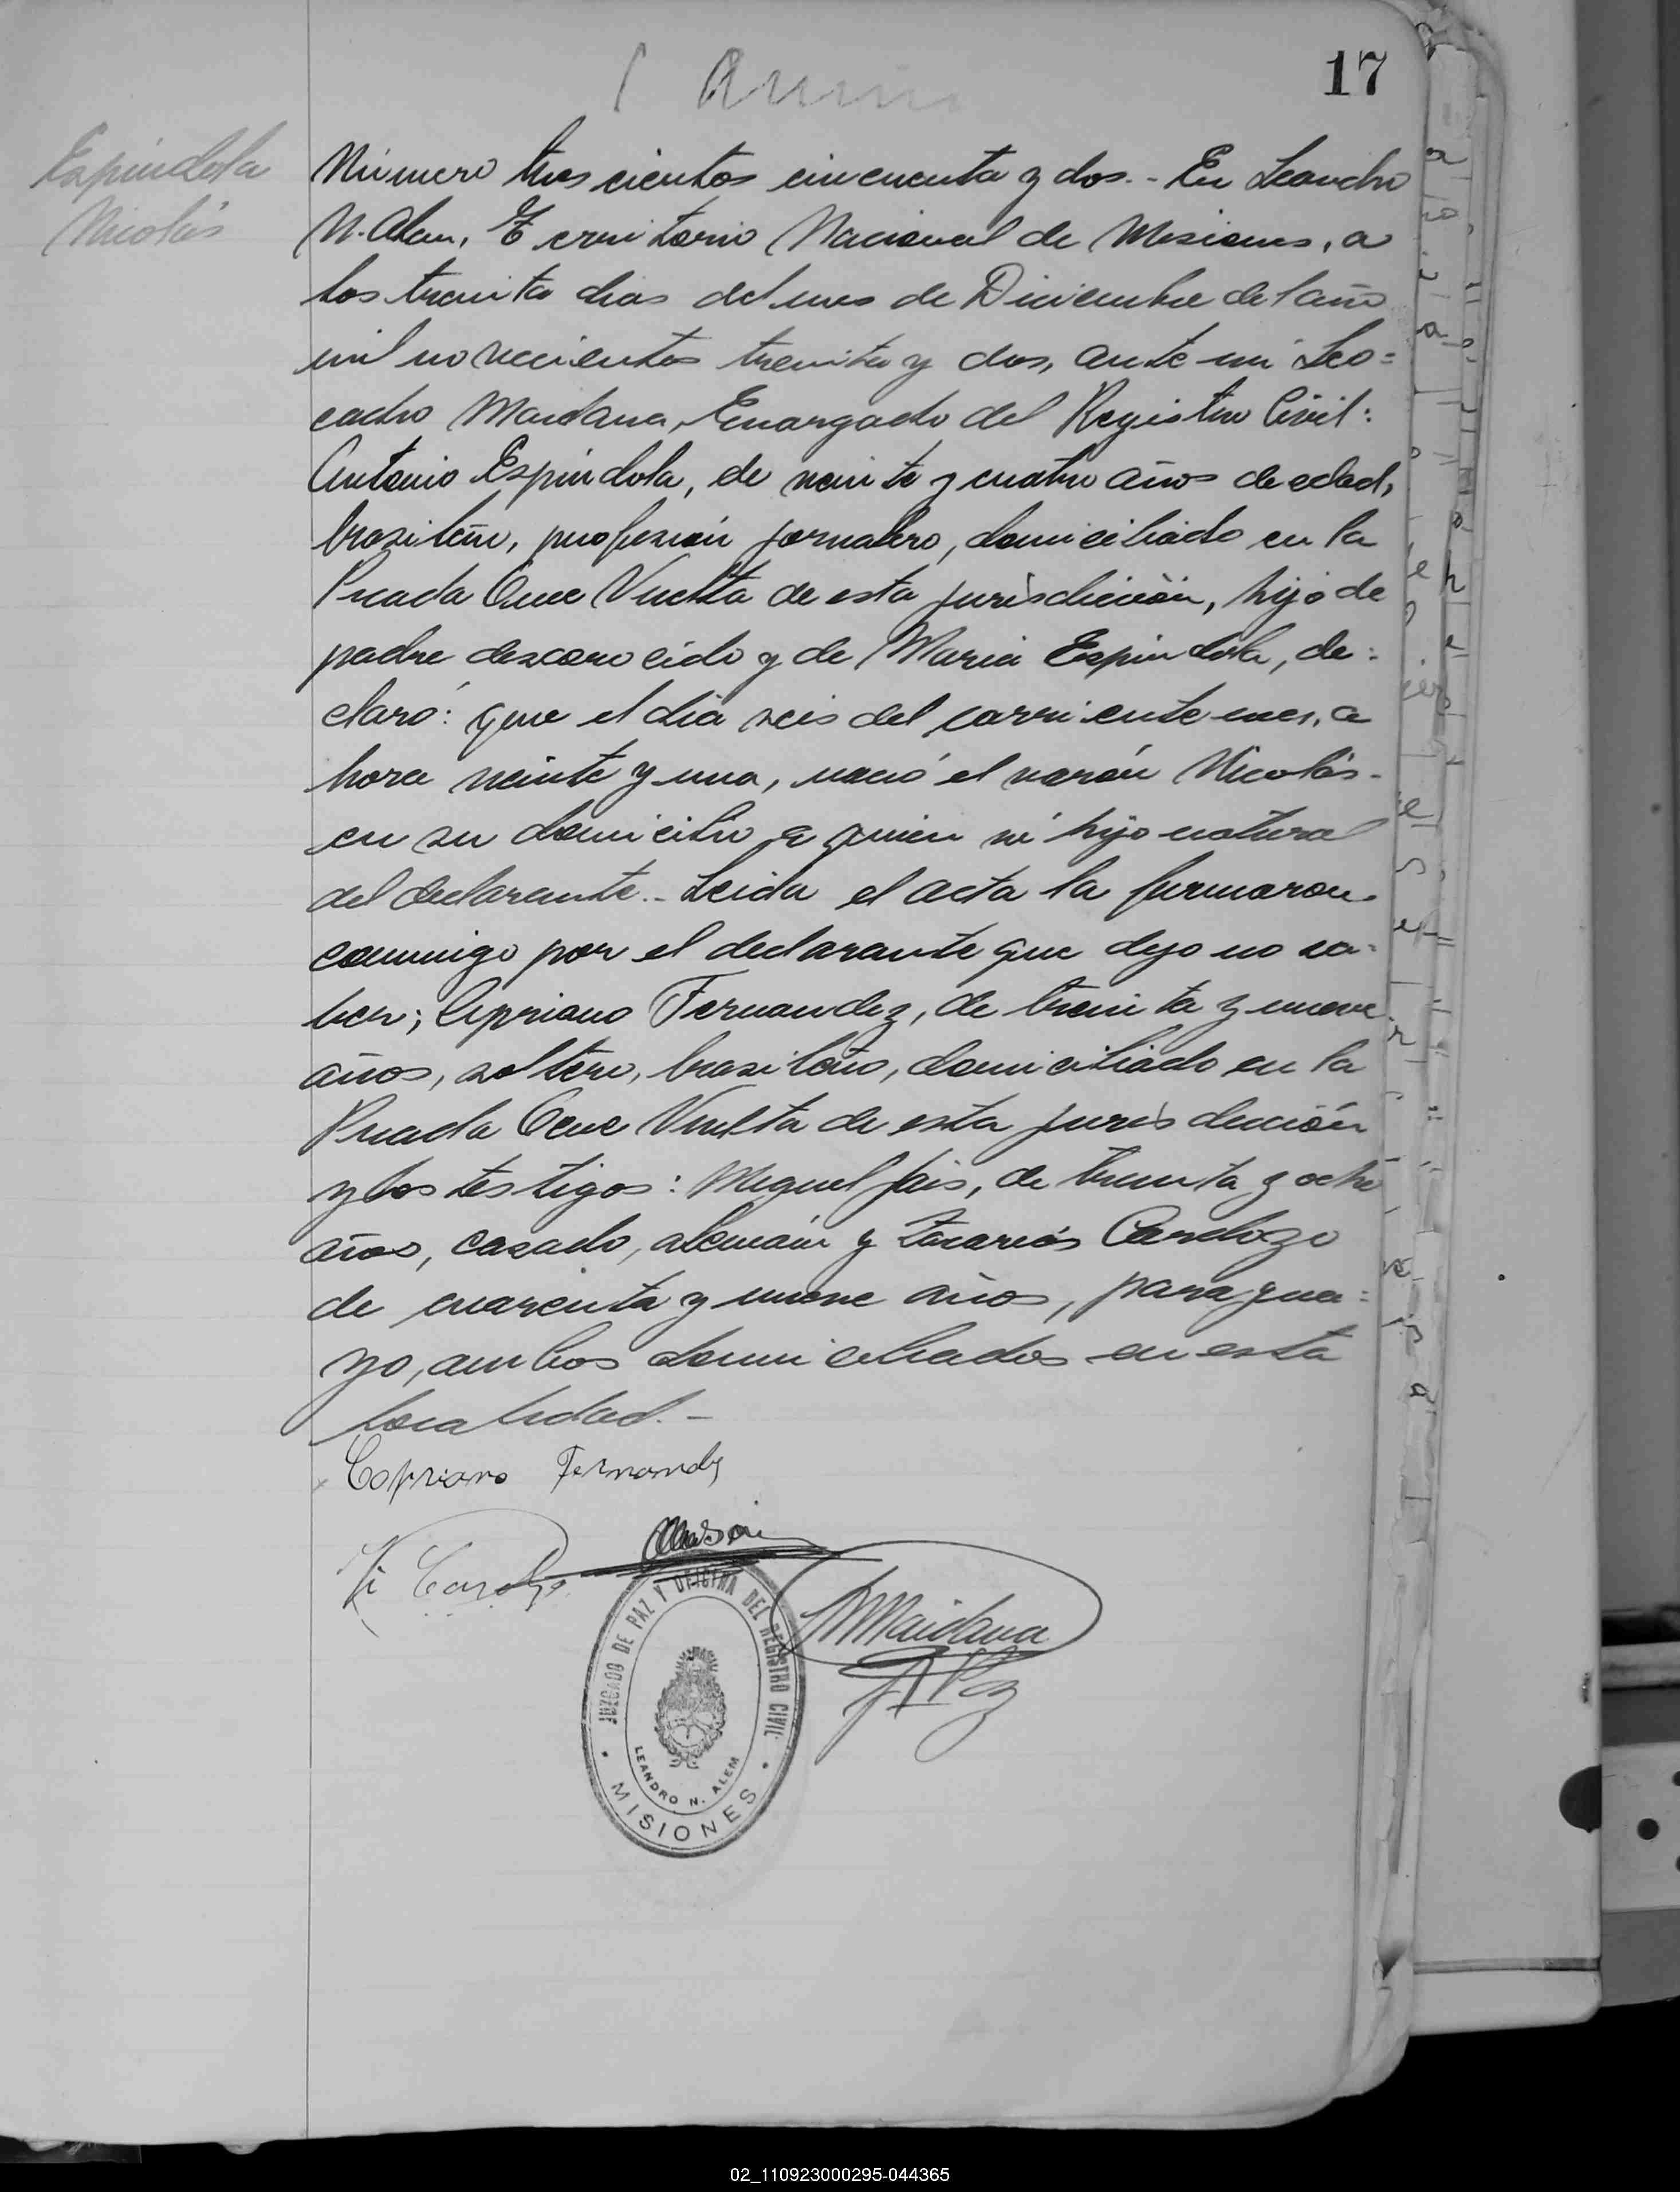 17
Espindola
Nicolás
Número tres cientos cincuenta y dos.- En Leandro
N. Alem, Territorio Nacional de Misiones, a
los treinta dias del mes de Diciembre del año
mil novecientos treinta y dos, ante mi Leo=
cadio Maidana, Encargado del Registro Civil:
Antonio Espindola, de veinte y cuatro años de edad,
brasileño, profesión jornalero, domiciliado en la
Picada Once Vuelta de esta jurisdicción, hijo de
padre desconocido y de Maria Espindola, de=
claró: que el dia seis del corriente mes, a
hora veinte y una, nació el varón Nicolás-
en su domicilio a quien vi hijo natural
del declarante.- Leida el acta la firmaron
conmigo por el declarante que dejo no sa=
ber; Cipriano Fernandez, de treinta y nueve
años, soltero, brasileño, domiciliado en la
Picada Once Vuelta de esta jurisdicción
y los testigos: Miguel Jais, de treinta y ocho
años, casado, alemán y Zacarias Cardozo
de cuarenta y nueve años, paragua=
yo, ambos domiciliados en esta
localidad.-
Copriano Fernandz
Cardozo
Maidana
J. Paz
JUZGADO DE PAZ Y OFICINA DEL REGISTRO CIVIL
LEANDRO N. ALEM
MISIONES
02_110923000295-044365